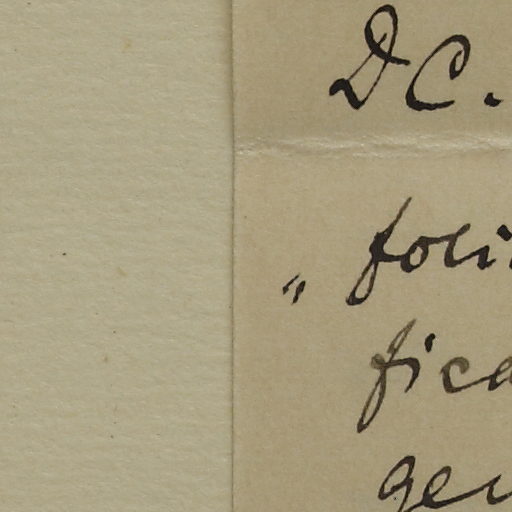 DC.
„ foli
fica
gen